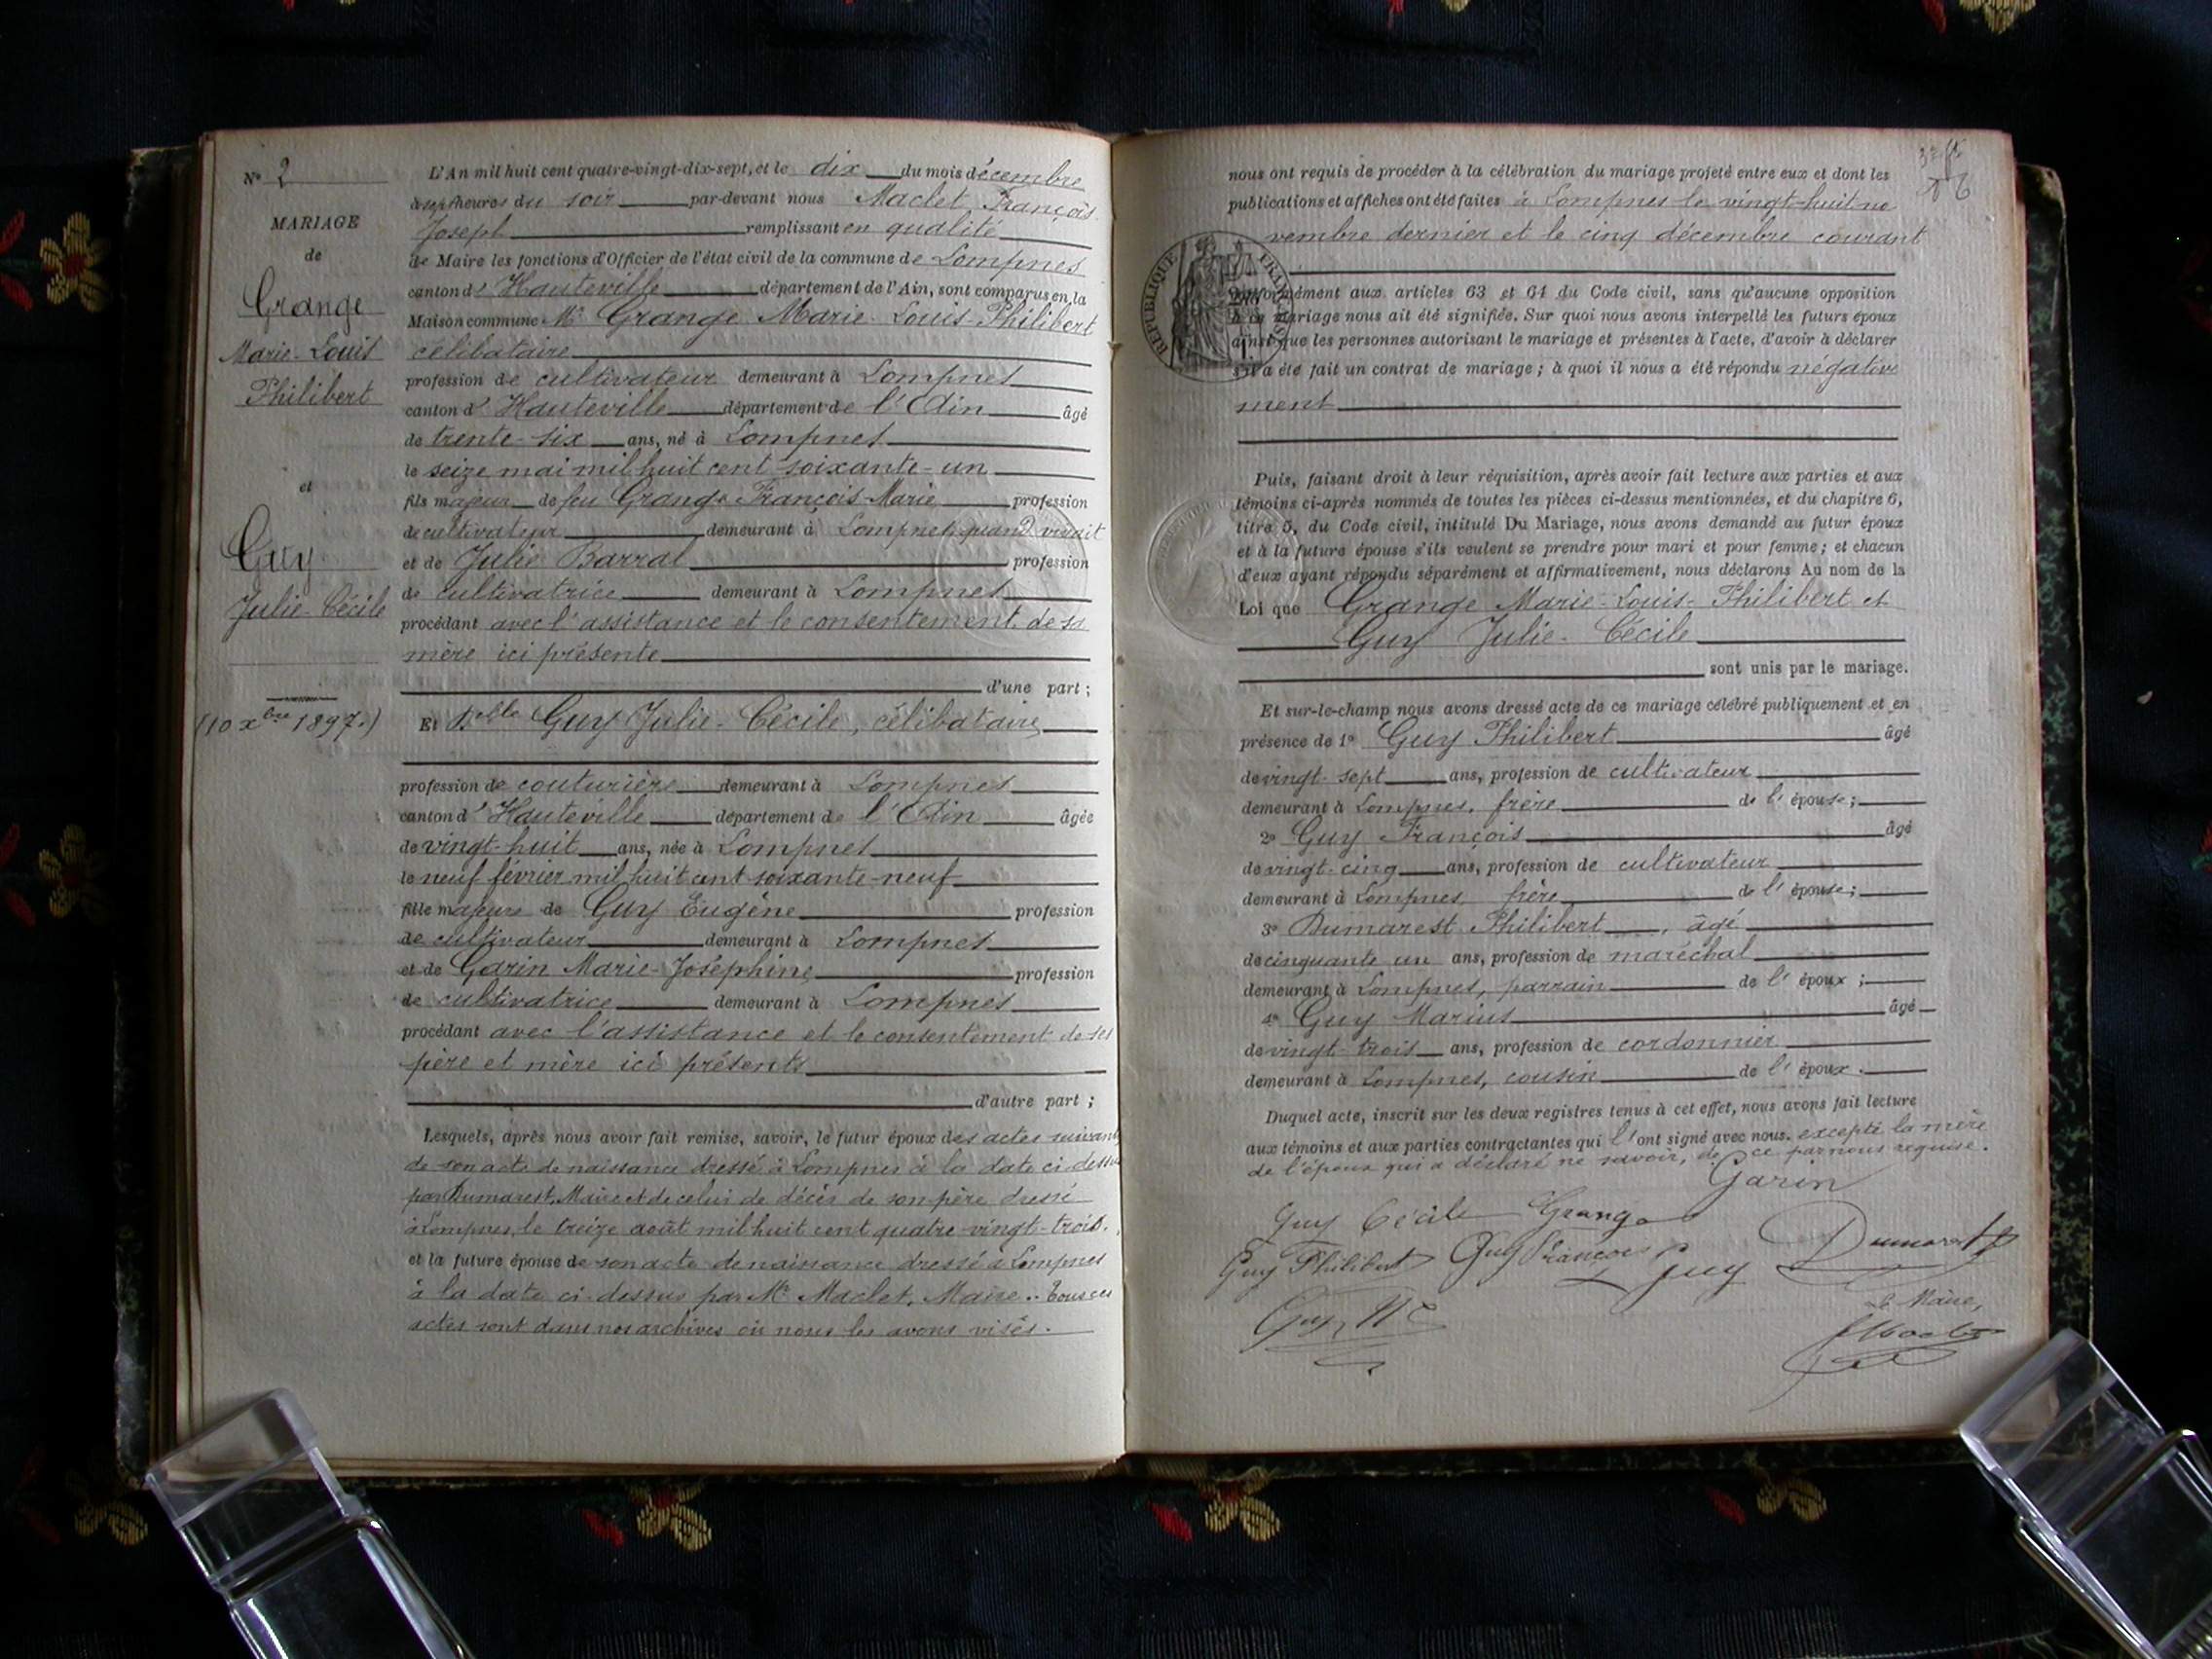 N° 2
MARIAGE
de
Grange
Marie-Louis
Philibert
et
Guy
Julie-Cécile
(10 xbre 1897.)
L'An mil huit cent quatre-vingt-dix-sept, et le dix du mois décembre
à sept heures du soir par-devant nous Maclet François
Joseph remplissant en qualité
de Maire les fonctions d'Officier de l'état civil de la commune de Lompnes
canton d'Hauteville département de l'Ain, sont comparus en la
Maison commune Mr Grange Marie-Louis-Philibert
célibataire
profession de cultivateur demeurant à Lompnes
canton d'Hauteville département de l'Ain âgé
de trente-six ans, né à Lompnes
le seize mai mil huit cent soixante-un
fils majeur de feu Grange François-Marie profession
de cultivateur demeurant à Lompnes quand vivait
et de Julie Barral profession
de cultivatrice demeurant à Lompnes
procédant avec l'assistance et le consentement de sa
mère ici présente
d'une part ;
Et Delle Guy Julie-Cécile, célibataire
profession de couturière demeurant à Lompnes
canton d'Hauteville département de l'Ain âgée
de vingt-huit ans, née à Lompnes
le neuf février mil huit cent soixante-neuf
fille majeure de Guy Eugène profession
de cultivateur demeurant à Lompnes
et de Garin Marie-Joséphine profession
de cultivatrice demeurant à Lompnes
procédant avec l'assistance et le consentement de ses
père et mère ici présents
d'autre part ;
Lesquels, après nous avoir fait remise, savoir, le futur époux des actes suivants
de son acte de naissance dressé à Lompnes à la date ci-dessus
par Dumarest, Maire et de celui de décès de son père dressé
à Lompnes, le treize août mil huit cent quatre-vingt-trois.
et la future épouse de son acte de naissance dressé à Lompnes
à la date ci-dessus par Mr Maclet, Maire.. Tous ces
actes sont dans nos archives où nous les avons visés.
nous ont requis de procéder à la célébration du mariage projeté entre eux et dont les
publications et affiches ont été faites à Lompnes le vingt-huit no
vembre dernier et le cinq décembre courant
RÉPUBLIQUE FRANÇAISE
conformément aux articles 63 et 64 du Code civil, sans qu'aucune opposition
à ce mariage nous ait été signifiée. Sur quoi nous avons interpellé les futurs époux
ainsi que les personnes autorisant le mariage et présentes à l'acte, d'avoir à déclarer
s'il a été fait un contrat de mariage ; à quoi il nous a été répondu négative
ment
Puis, faisant droit à leur réquisition, après avoir fait lecture aux parties et aux
témoins ci-après nommés de toutes les pièces ci-dessus mentionnées, et du chapitre 6,
titre 5, du Code civil, intitulé Du Mariage, nous avons demandé au futur époux
et à la future épouse s'ils veulent se prendre pour mari et pour femme ; et chacun
d'eux ayant répondu séparément et affirmativement, nous déclarons Au nom de la
Loi que Grange Marie-Louis-Philibert et
Guy Julie-Cécile
sont unis par le mariage.
Et sur-le-champ nous avons dressé acte de ce mariage célébré publiquement et en
présence de 1° Guy Philibert âgé
de vingt-sept ans, profession de cultivateur
demeurant à Lompnes, frère de l'épouse ;
2° Guy François âgé
de vingt-cinq ans, profession de cultivateur
demeurant à Lompnes, frère de l'épouse ;
3° Dumarest Philibert, âgé
de cinquante un ans, profession de maréchal
demeurant à Lompnes, parrain de l'époux ;
4° Guy Marius âgé
de vingt-trois ans, profession de cordonnier
demeurant à Lompnes, cousin de l'époux.
Duquel acte, inscrit sur les deux registres tenus à cet effet, nous avons fait lecture
aux témoins et aux parties contractantes qui l'ont signé avec nous, excepté la mère
de l'époux qui a déclaré ne savoir, de ce par nous requise.
Garin
Guy Cécile Grange
Guy Philibert Guy François Guy Dumarest
Guy
Le Maire,